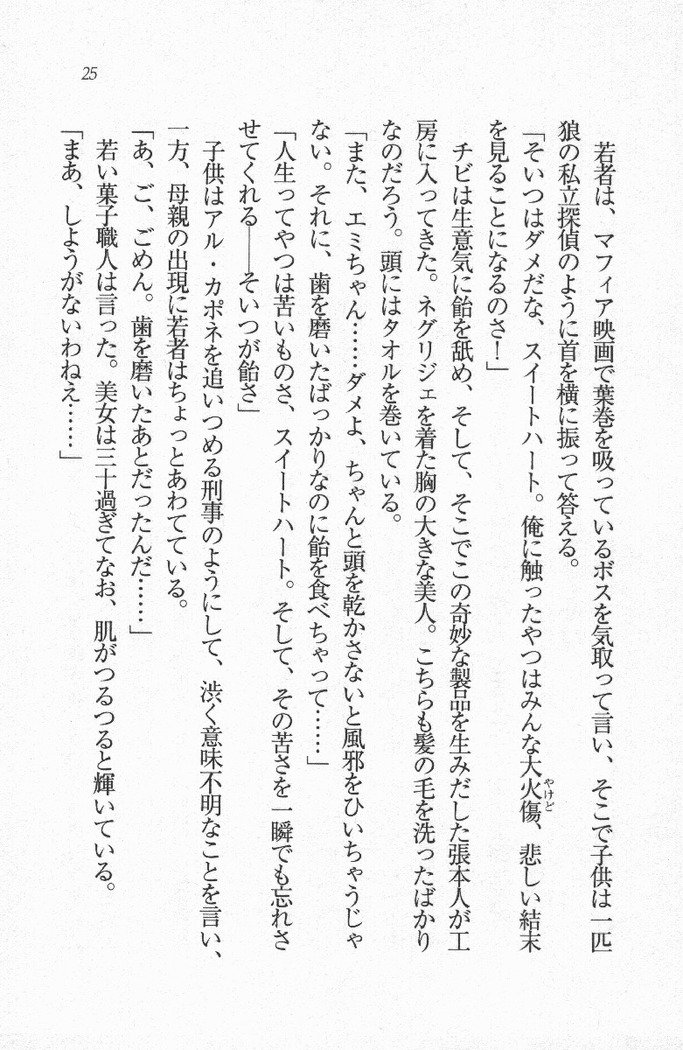 25
若者は、マフィア映画で葉巻を吸っているボスを気取って言い、そこで子供は一匹
狼の私立探偵のように首を横に振って答える。
「そいつはダメだな、スイートハート。俺に触ったやつはみんな大火傷、悲しい結末
やけど
を見ることになるのさ!」
チビは生意気に飴を舐め、そして、そこでこの奇妙な製品を生みだした張本人が工
房に入ってきた。ネグリジェを着た胸の大きな美人。こちらも髪の毛を洗ったばかり
なのだろう。頭にはタオルを巻いている。
「また、エミちゃん……ダメよ、ちゃんと頭を乾かさないと風邪をひいちゃうじゃ
ない。それに、歯を磨いたばっかりなのに飴を食べちゃって……」
「人生ってやつは苦いものさ、スイートハート。そして、その苦さを一瞬でも忘れさ
せてくれる――そいつが飴さ」
子供はアル・カポネを追いつめる刑事のようにして、渋く意味不明なことを言い、
一方、母親の出現に若者はちょっとあわてている。
「あ、ご、ごめん。歯を磨いたあとだったんだ……」
若い菓子職人は言った。美女は三十過ぎてなお、肌がつるつると輝いている。
「まあ、しようがないわねえ……」